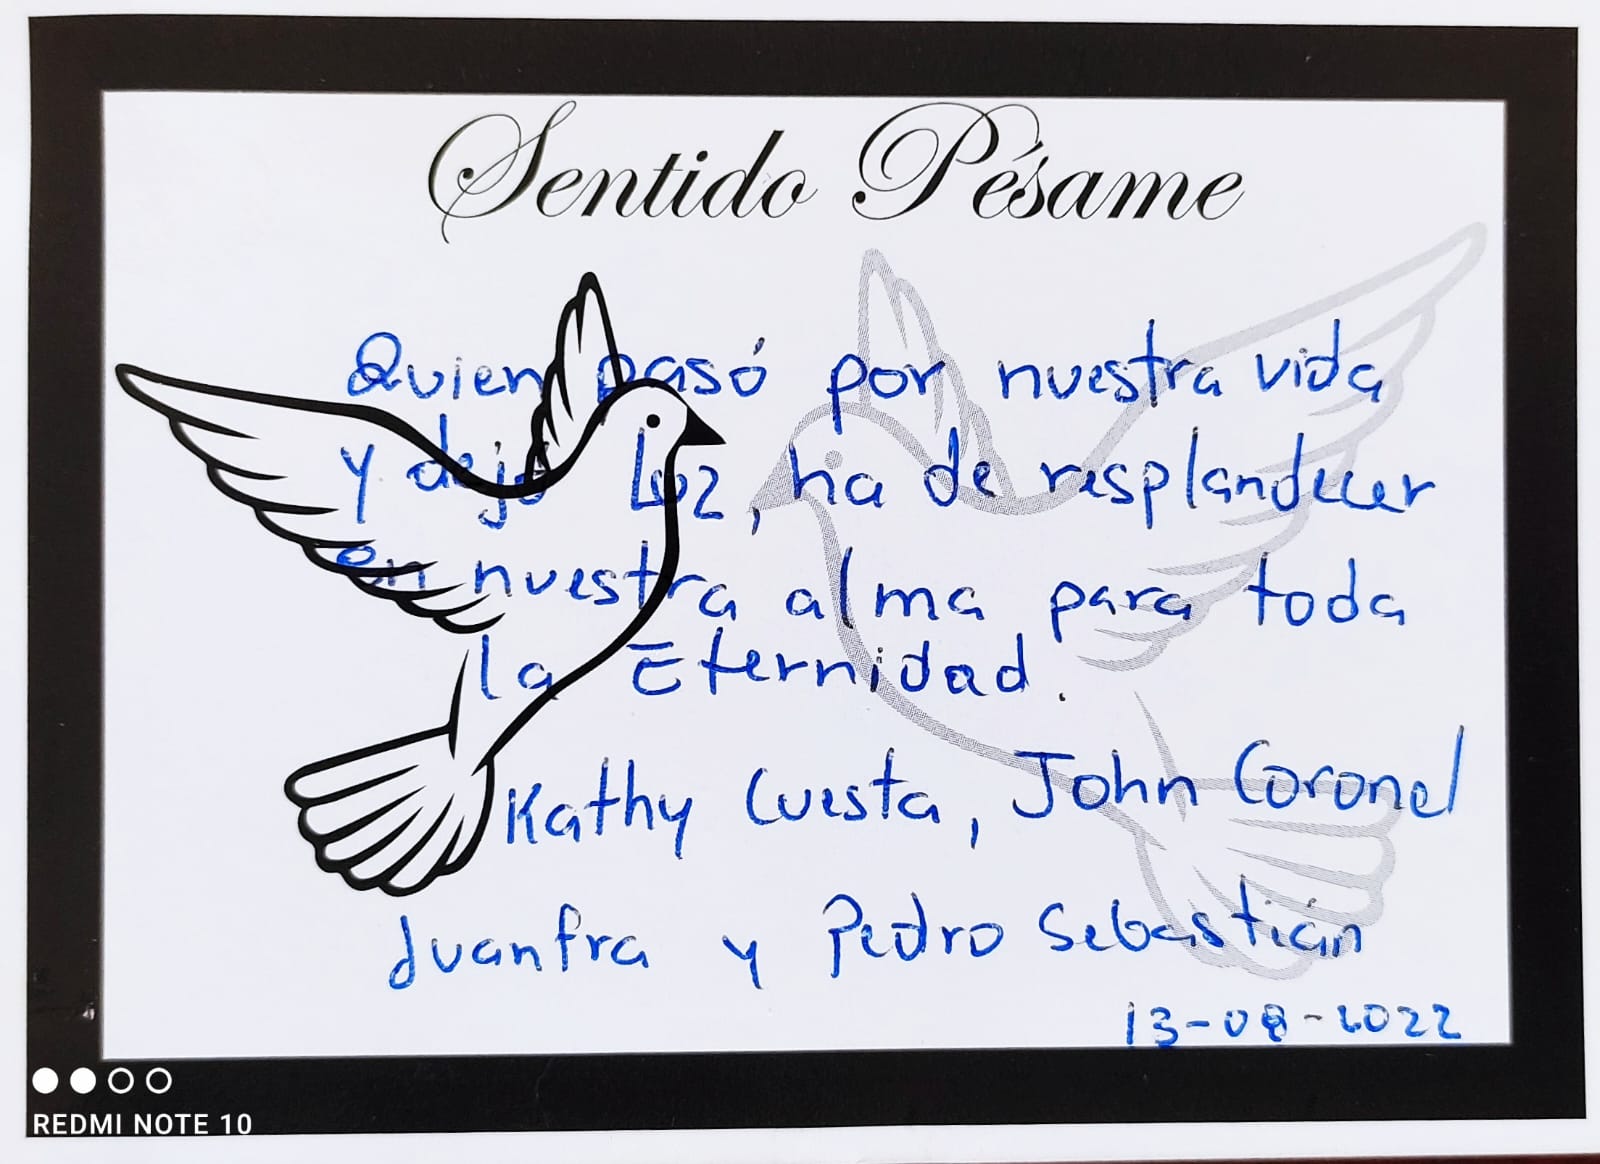 Sentido Pésame
Quien pasó por nuestra vida
y dejó Luz, ha de resplandecer
en nuestra alma para toda
la Eternidad.
Kathy Cuesta, John Coronel
Juanfra y Pedro Sebastián
13-08-2022
REDMI NOTE 10